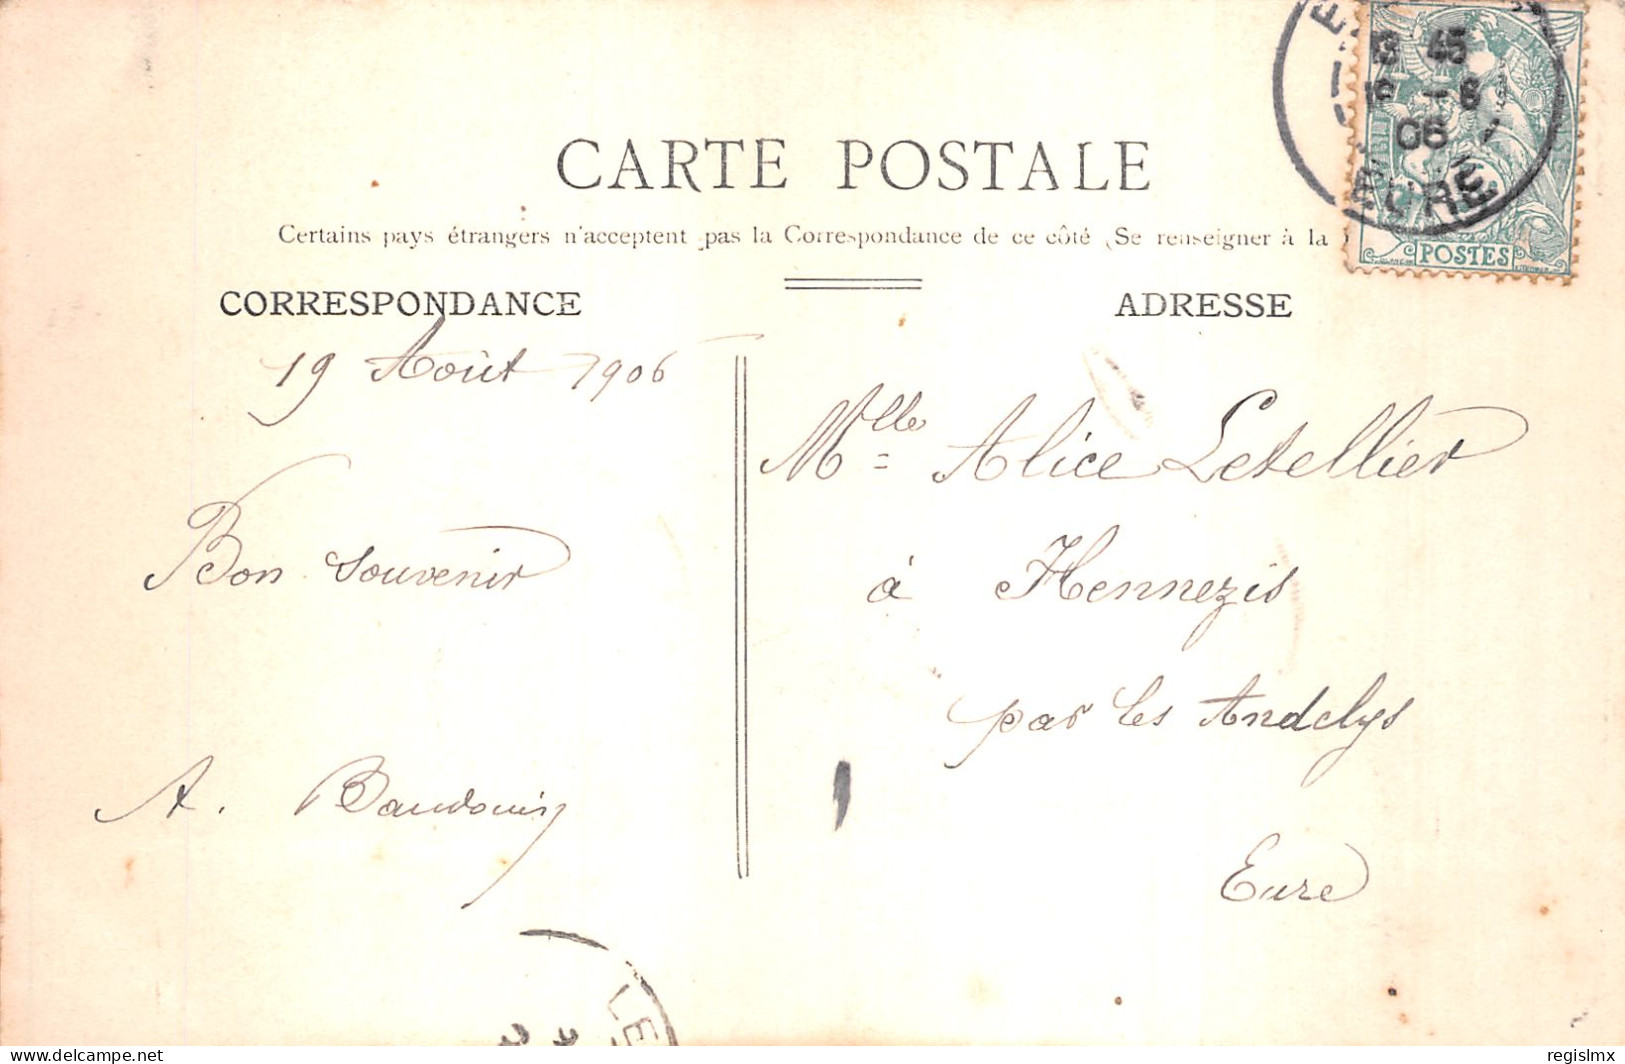 CARTE POSTALE
Certains pays étrangers n'acceptent pas la Correspondance de ce côté (Se renseigner à la
CORRESPONDANCE
ADRESSE
45
-8
06
POSTES
19 Août 1906
Bon souvenir
A. Baudouin
Mlle Alice Letellier
à Hennezis
par les Andelys
Eure
LE
delcampe.net
regislmx